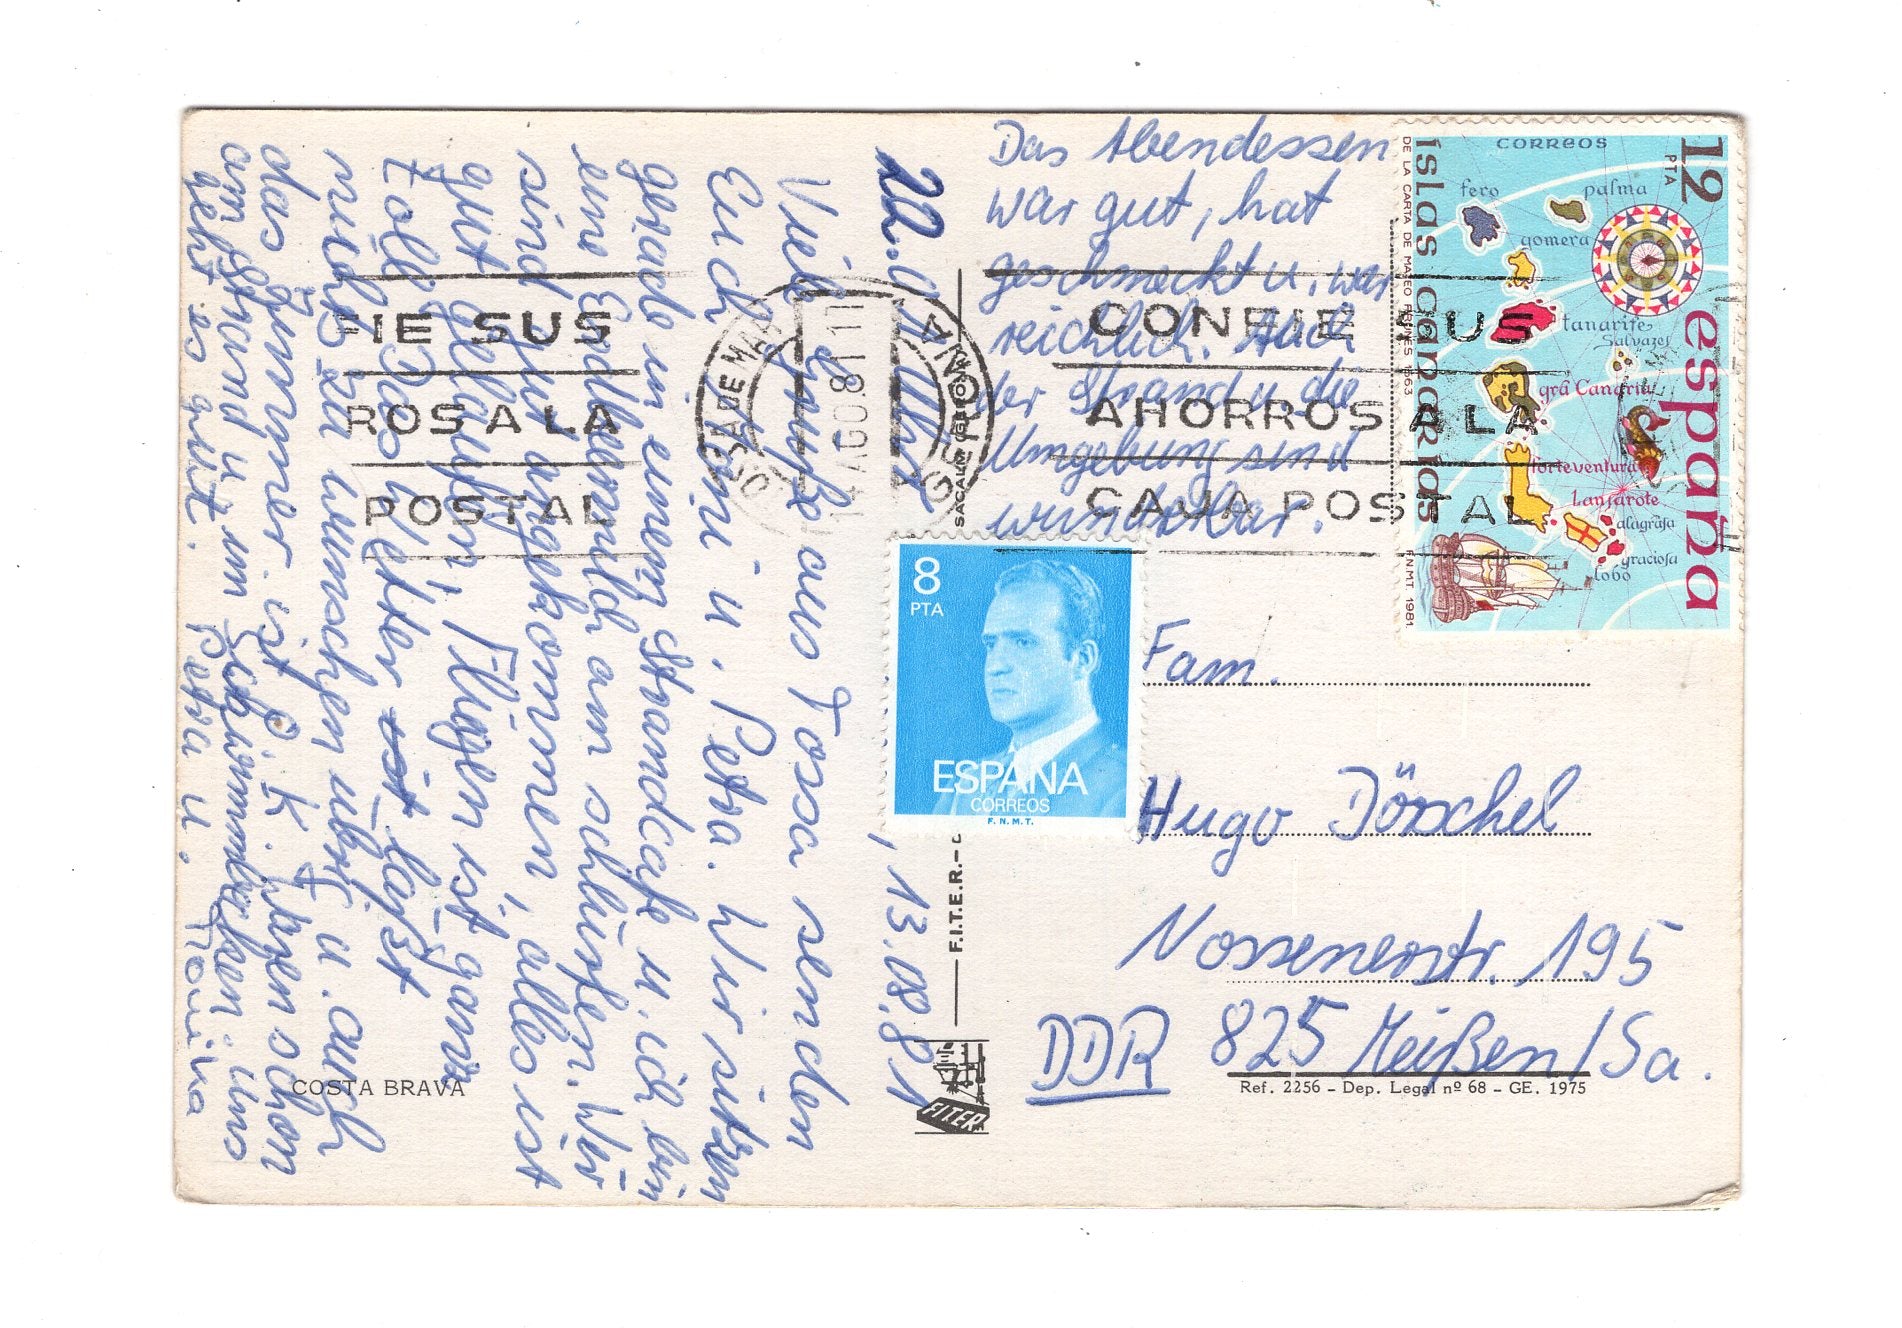 22. , 13.08.81
Viele Grüße aus Tossa senden
Euch Omi u. Petra. Wir sitzen
gerade in einem Strandcafe u. ich bin
eine Erdbeermilch am schlürfen. Wir
sind gut angekommen, alles ist
gut gelaufen, Fliegen ist ganz
toll. Das Wetter ist läßt
nichts zu wünschen übrig u. auch
das Zimmer ist O.K. Liegen schon
am Strand u. am Schwimmbecken. Uns
geht es gut. Petra u.
COSTA BRAVA
Das Abendessen
war gut, hat
geschmeckt u. war
reichlich. Auch
der Strand u. die
Umgebung sind
wunderbar.
Fam.
Hugo Dörschel
Nossenerstr. 195
DDR 825 Meißen/Sa.
Ref. 2256 - Dep. Legal nº 68 - GE. 1975
F.I.T.E.R.-
FITER
FIE SUS
ROS A LA
POSTAL
TOSSA DE MAR
14 AGO.81 11
GERONA
CONFIE SUS
AHORROS A LA
CAJA POSTAL
8
PTA
ESPAÑA
CORREOS
F.N.M.T.
12
PTA
españa
CORREOS
islas canarias
DE LA CARTA DE MATEO PRUNES 1563
F.N.M.T. 1981
fero
palma
gomera
tanarife
Salvazes
grã Canaria
forteventura
Lansarote
alagrãsa
graciosa
lobo